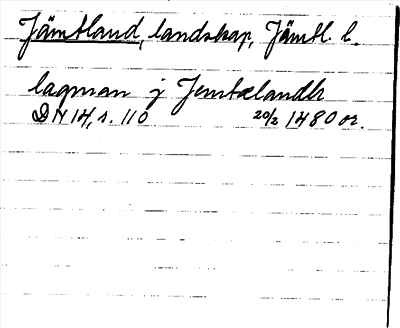 Jämtland, landskap, Jämtl. l.
lagman j Jemtelandh
DN 14, s. 110 20/2 1480 or.